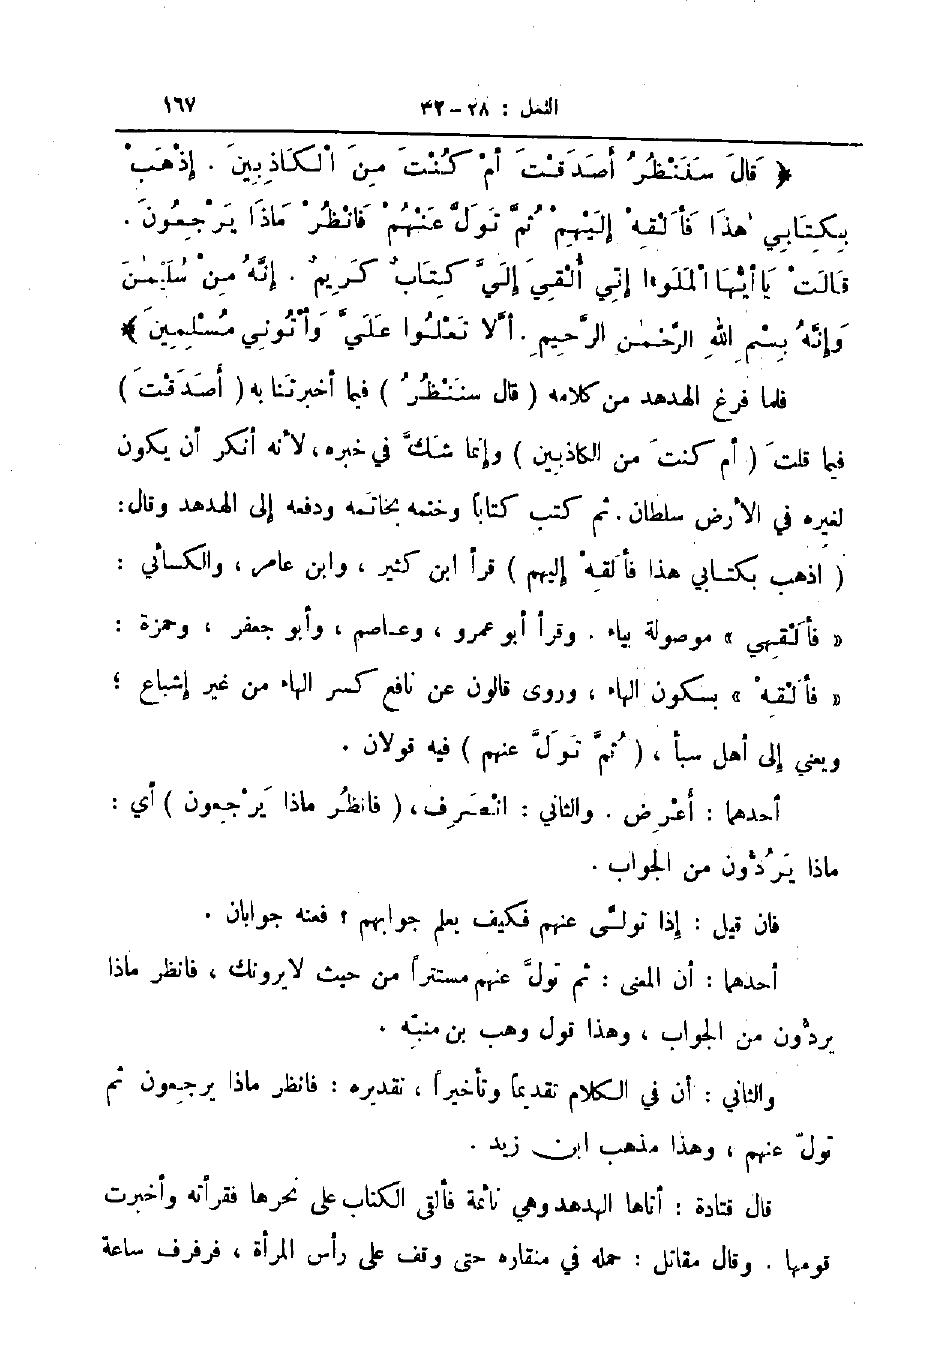 النمل : ٢٨ - ٣٢ ١٦٧
﴿ قَالَ سَنَنْظُرُ أَصَدَقْتَ أَمْ كُنْتَ مِنَ الْكَاذِبِينَ . إِذْهَبْ
بِكِتَابِي هٰذَا فَأَلْقِهْ إِلَيْهِمْ ثُمَّ تَوَلَّ عَنْهُمْ فَانْظُرْ مَاذَا يَرْجِعُونَ .
قَالَتْ يَا أَيُّهَا الْمَلَؤُا إِنِّي أُلْقِيَ إِلَيَّ كِتَابٌ كَرِيمٌ . إِنَّهُ مِنْ سُلَيْمٰنَ
وَإِنَّهُ بِسْمِ اللهِ الرَّحْمٰنِ الرَّحِيمِ . أَلَّا تَعْلُوا عَلَيَّ وَأْتُونِي مُسْلِمِينَ ﴾
فلما فرغ الهدهد من كلامه ( قال سنَنْظُرُ ) فيما أخبرتَنا به ( أَصَدَقْتَ )
فيما قلتَ ( أم كنتَ من الكاذبين ) وإنما شكَّ في خبره، لأنه أنكر أن يكون
لغيره في الأرض سلطان . ثم كتب كتاباً وختمه بخاتمه ودفعه إلى الهدهد وقال:
( اذهب بكتابي هذا فأَلقِهْ إليهم ) قرأ ابن كثير ، وابن عامر ، والكسائي :
« فأَلْقِهي » موصولة بياء . وقرأ أبو عمرو ، وعاصم ، وأبو جعفر ، وحمزة :
« فأَلْقِهْ » بسكون الهاء ، وروى قالون عن نافع كسر الهاء من غير إشباع ؛
ويعني إلى أهل سبأ ، ( ثُمَّ تَوَلَّ عنهم ) فيه قولان .
أحدهما : أَعْرِض . والثاني : انْصَرِف، ( فانظُر ماذا يَرْجِعون ) أي :
ماذا يَرُدُّون من الجواب .
فان قيل : إذا تولَّى عنهم فكيف يعلم جوابهم ؟ فعنه جوابان .
أحدهما : أن المعنى : ثم تولَّ عنهم مستتراً من حيث لايرونك ، فانظر ماذا
يردُّون من الجواب ، وهذا قول وهب بن منبِّه .
والثاني : أن في الكلام تقديماً وتأخيراً ، تقديره : فانظر ماذا يرجعون ثم
تولّ عنهم ، وهذا مذهب ابن زيد .
قال قتادة : أتاها الهدهد وهي نائمة فألقى الكتاب على نحرها فقرأته وأخبرت
قومها . وقال مقاتل : حمله في منقاره حتى وقف على رأس المرأة ، فرفرف ساعة